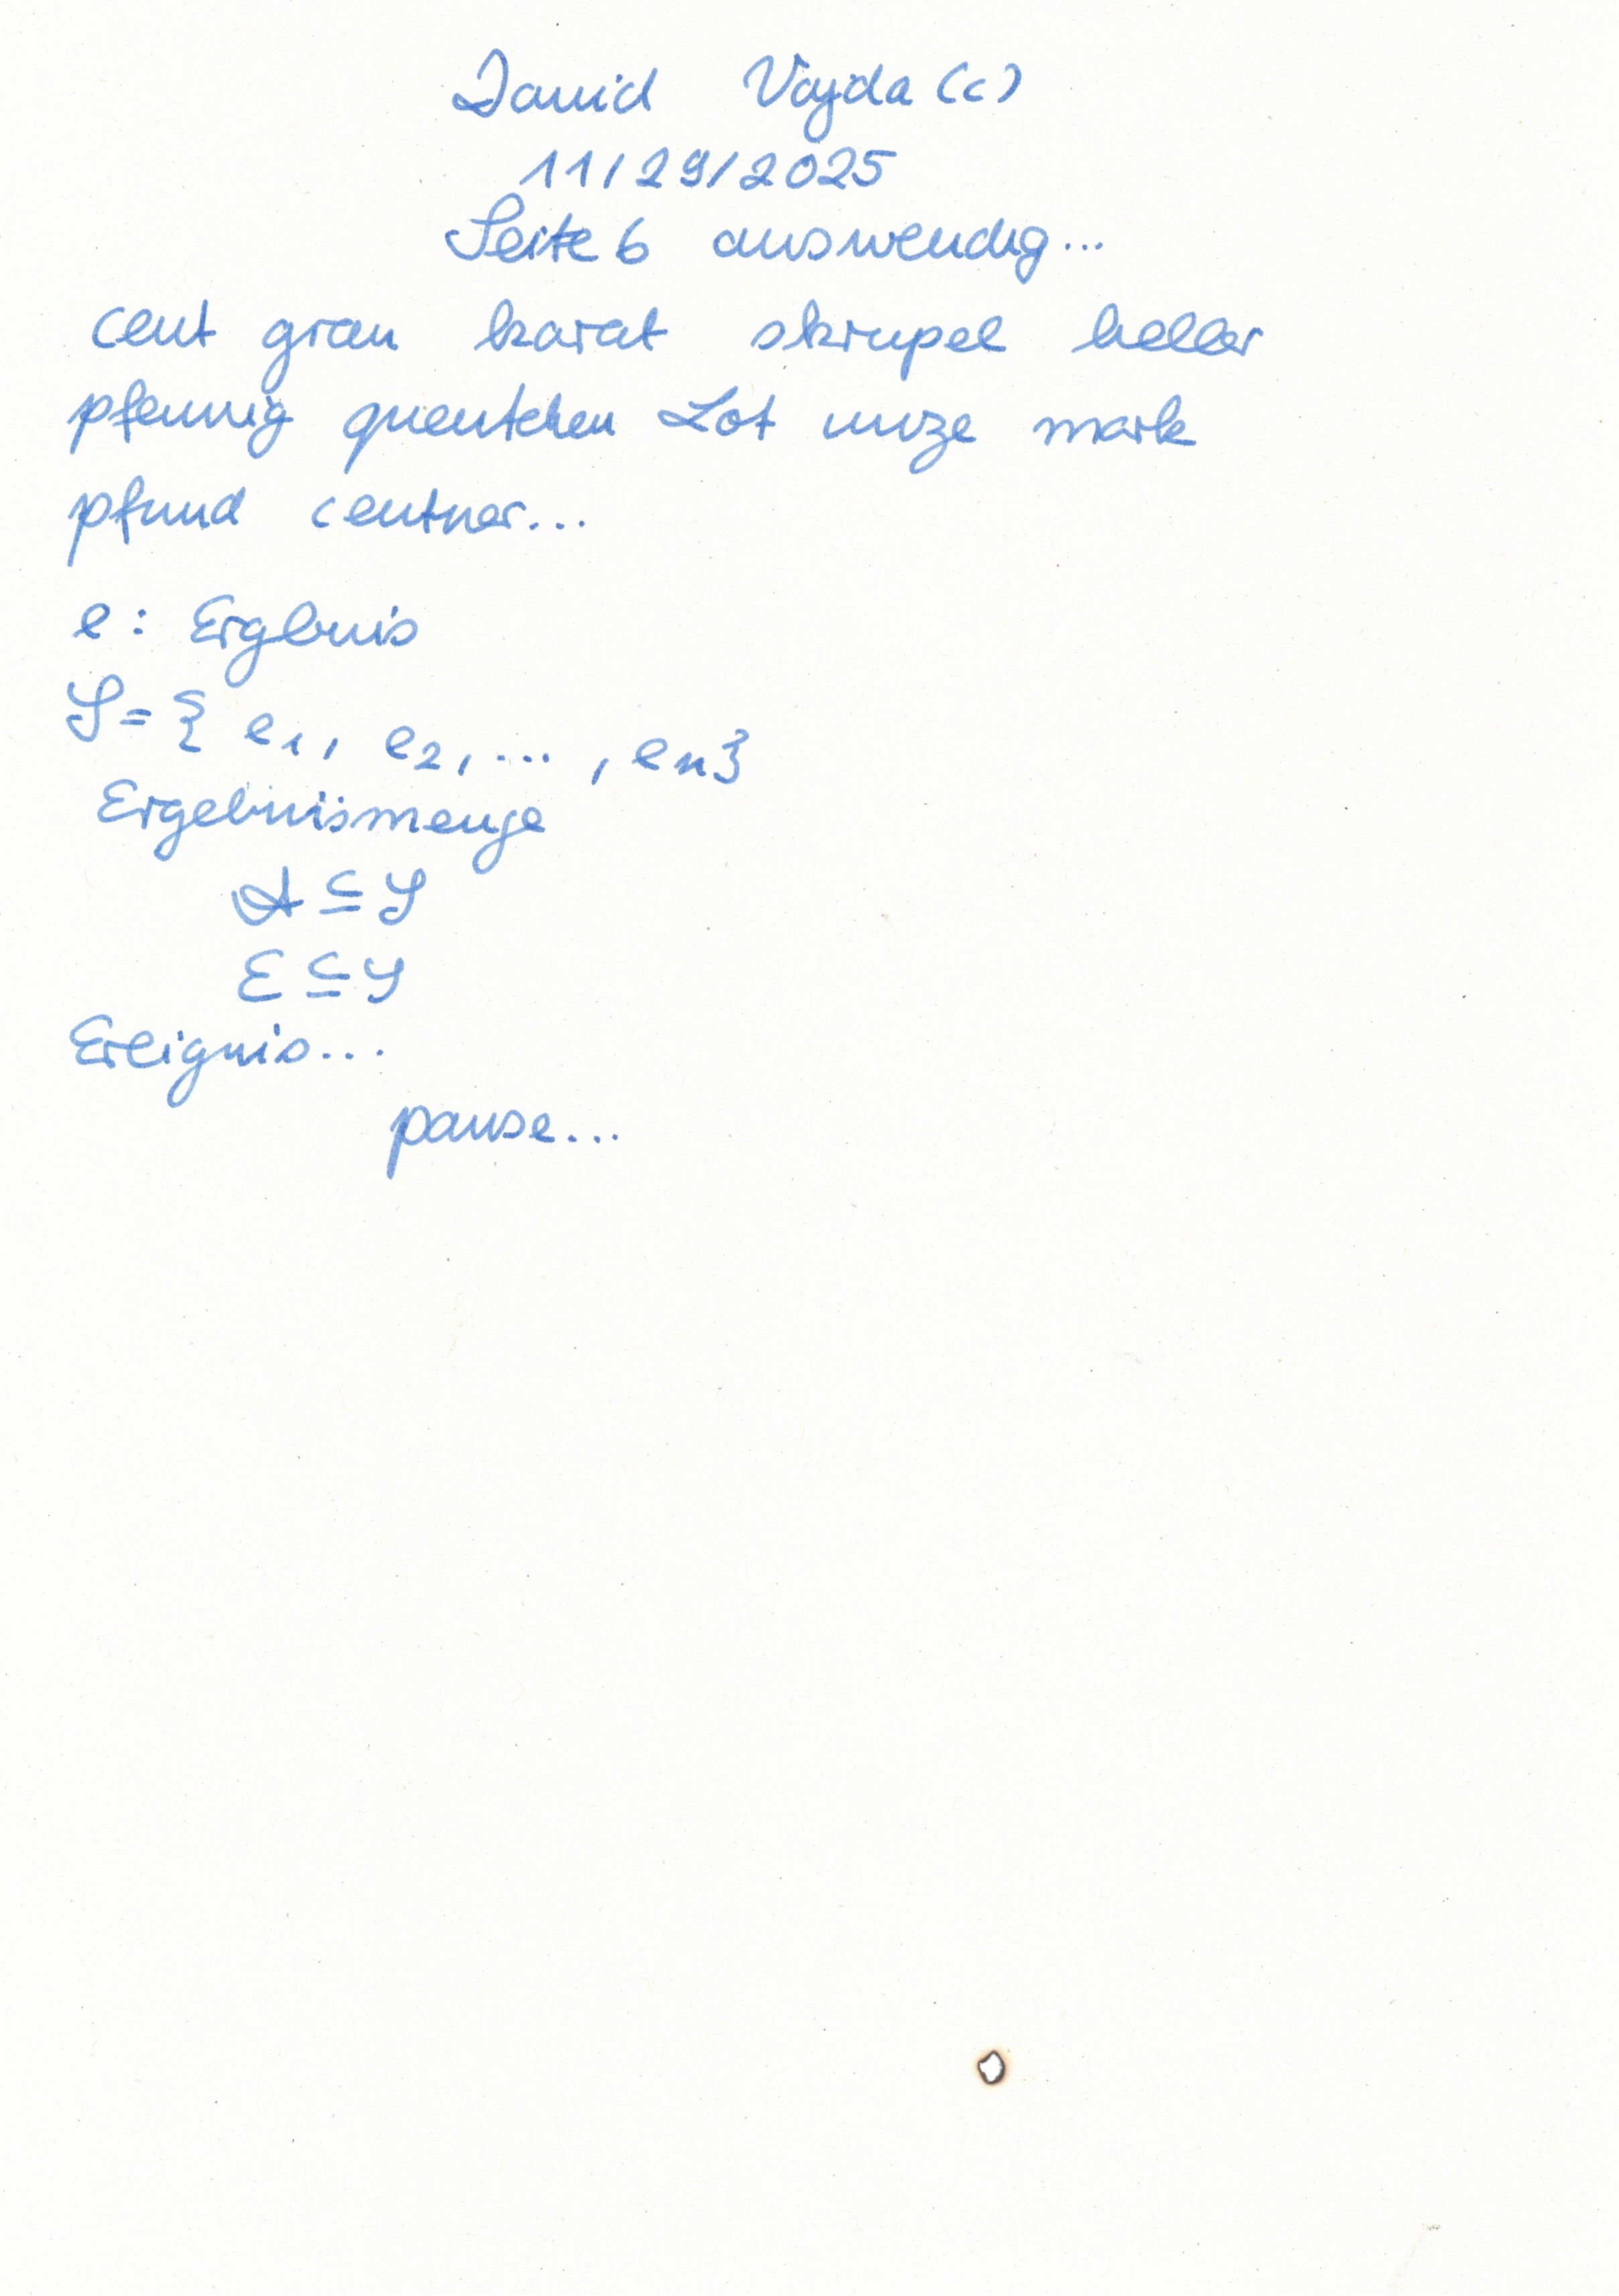 David Vajda (c)
11/29/2025
Seite 6 auswendig...
cent gran karat skrupel heller
pfennig quentchen Lot unze mark
pfund centner...
e: Ergbnis
S = { e1, e2, ..., en}
Ergebnismenge
A ⊆ S
E ⊆ S
Ereignis...
pause...